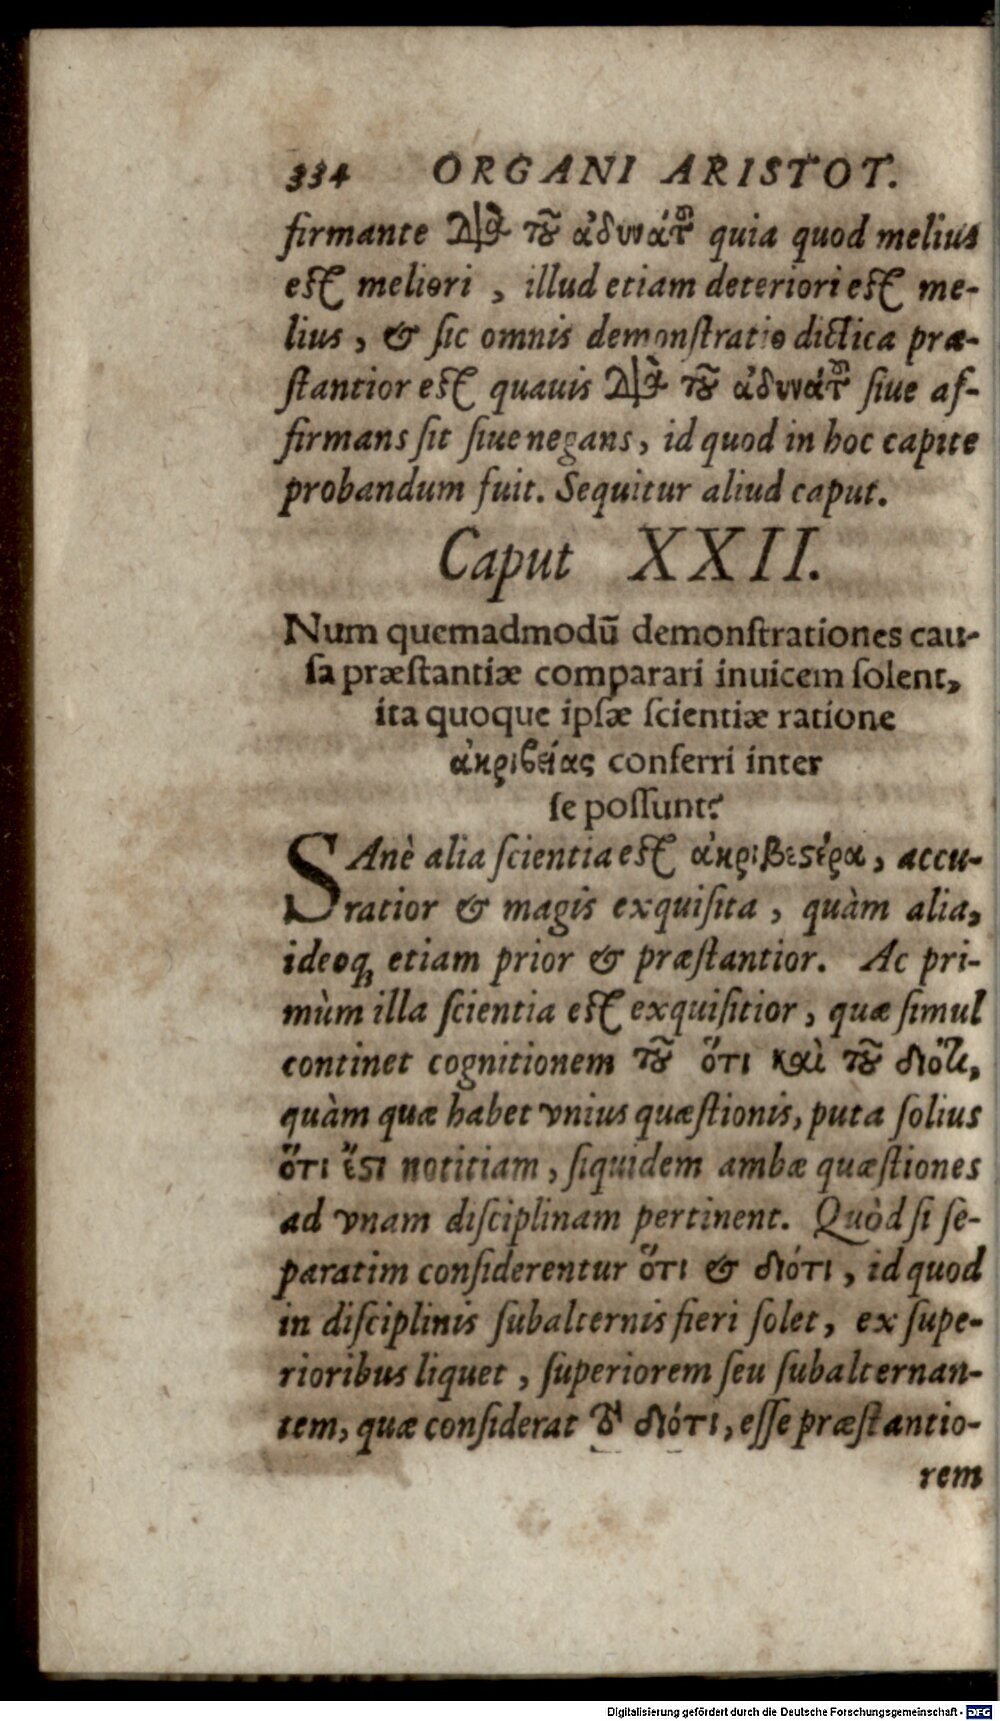 334 ORGANI ARISTOT.
firmante διὰ τοῦ ἀδυνάτου quia quod melius
est meliori, illud etiam deteriori est me-
lius, & sic omnis demonstratio dictica præ-
stantior est quauis διὰ τοῦ ἀδυνάτου siue af-
firmans sit siue negans, id quod in hoc capite
probandum fuit. Sequitur aliud caput.
Caput XXII.
Num quemadmodū demonstrationes cau-
sa præstantiæ comparari inuicem solent,
ita quoque ipsæ scientiæ ratione
ἀκριβείας conferri inter
se possunt?
SAnè alia scientia est ἀκριβεστέρα, accu-
ratior & magis exquisita, quàm alia,
ideoq; etiam prior & præstantior. Ac pri-
mùm illa scientia est exquisitior, quæ simul
continet cognitionem τοῦ ὅτι καὶ τοῦ διότι,
quàm quæ habet vnius quæstionis, puta solius
ὅτι ἔστι notitiam, siquidem ambæ quæstiones
ad vnam disciplinam pertinent. Quòd si se-
paratim considerentur ὅτι & διότι, id quod
in disciplinis subalternis fieri solet, ex supe-
rioribus liquet, superiorem seu subalternan-
tem, quæ considerat τὸ διότι, esse præstantio-
rem
Digitalisierung gefördert durch die Deutsche Forschungsgemeinschaft - DFG